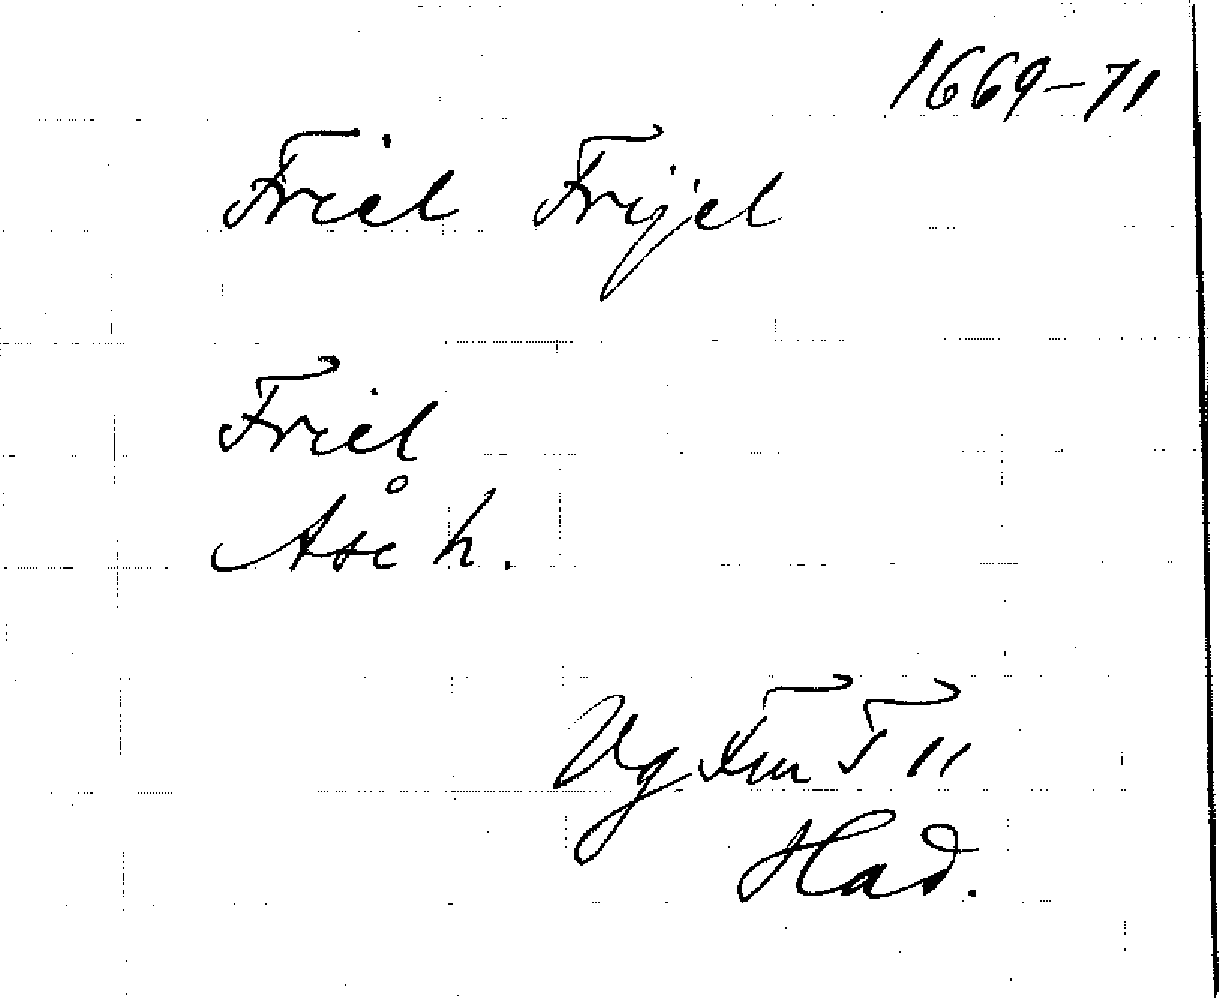 1669-71
Friel Frijel
Friel
Åse h.
Vg Fru T 11
Had.